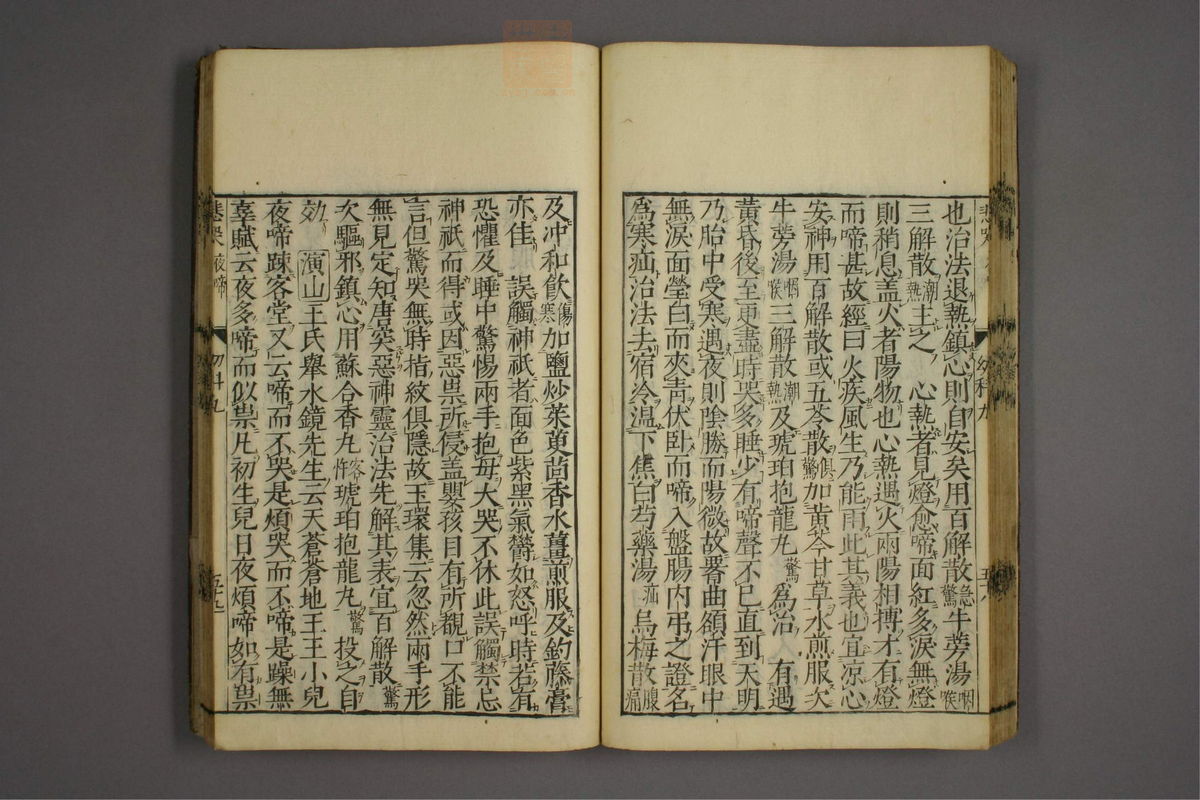 也治法退熱鎮心則自安矣用百解散急驚牛蒡湯咽喉
三解散潮熱主之　心熱者見燈愈啼面紅多淚無燈
則稍息盖火者陽物也心熱遇火兩陽相搏才有燈
而啼甚故經曰火疾風生乃能雨此其義也宜凉心
安神用百解散或五苓散俱驚加黃芩甘草水煎服次
牛蒡湯咽喉三解散潮熱及琥珀抱龍丸驚為治　有遇
黃昏後至更盡時哭多睡少有啼聲不已直到天明
乃胎中受寒遇夜則陰勝而陽微故腰曲額汗眼中
無淚面瑩白而夾靑伏卧而啼入盤腸內弔之證名
為寒疝治法去宿冷溫下焦白芍藥湯疝烏梅散腹痛
幼科九
及冲和飮傷寒加鹽炒茱萸茴香水薑煎服及釣藤膏
亦佳　誤觸神祇者面色紫黑氣鬱如怒呼時若有
恐懼及睡中驚惕兩手抱母大哭不休此誤觸禁忌
神祇而得或因惡祟所侵盖嬰孩目有所覩口不能
言但驚哭無時指紋俱隱故玉環集云忽然兩手形
無見定知唐㚑惡神靈治法先解其表宜百解散驚
次驅邪鎮心用蘇合香丸客忤琥珀抱龍丸驚投之自
効　演山王氏舉水鏡先生云天蒼蒼地王王小兒
夜啼踈客堂又云啼而不哭是煩哭而不啼是躁無
辜賦云夜多啼而似祟凡初生兒日夜煩啼如有祟
悲哭　夜啼
幼科九
五十九